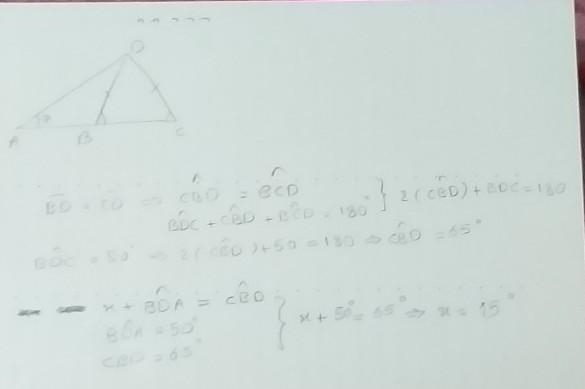 D
x
A B C
BD = CD ⇒ CB̂D = BĈD
BD̂C + CB̂D + BĈD = 180° } 2(CB̂D) + BD̂C = 180
BD̂C = 50° ⇒ 2(CB̂D) + 50 = 180 ⇒ CB̂D = 65°
x + BD̂A = CB̂D
BD̂A = 50° } x + 50° = 65° ⇒ x = 15°
CBD = 65°